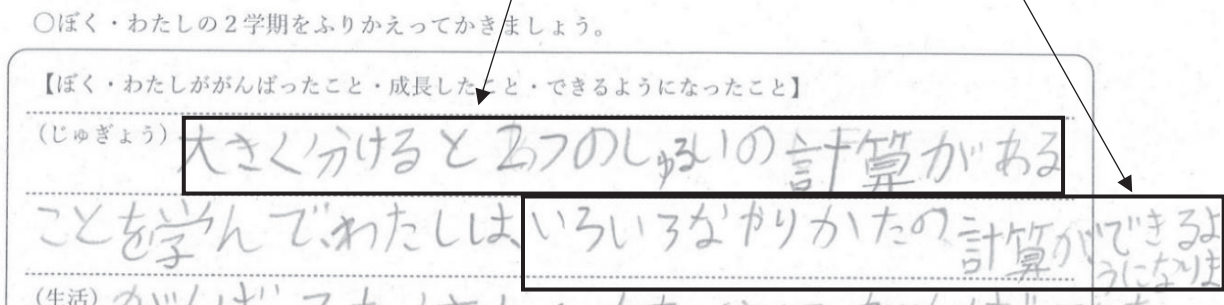 ○ぼく・わたしの2学期をふりかえってかきましょう。
【ぼく・わたしががんばったこと・成長したこと・できるようになったこと】
(じゅぎょう) 大きく分けると2つのしゅるいの計算がある
ことを学んで、わたしは、いろいろなやりかたの計算ができるよ
うになりま
(生活)